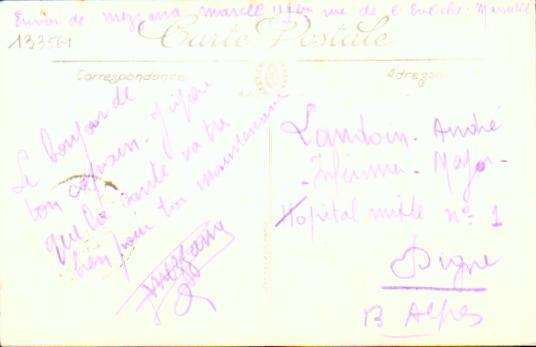 Envoi de mezzana marcel 11 rue de l'Evêché - Marseille
133561
Carte Postale
Correspondance
Adresse
Le bonjour de
ton copain. J'espère
que la santé va tu
bien pour toi maintenant
Mezzana
Landoin André
Infirmier Major
Hopital mixte n° 1
Digne
B Alpes